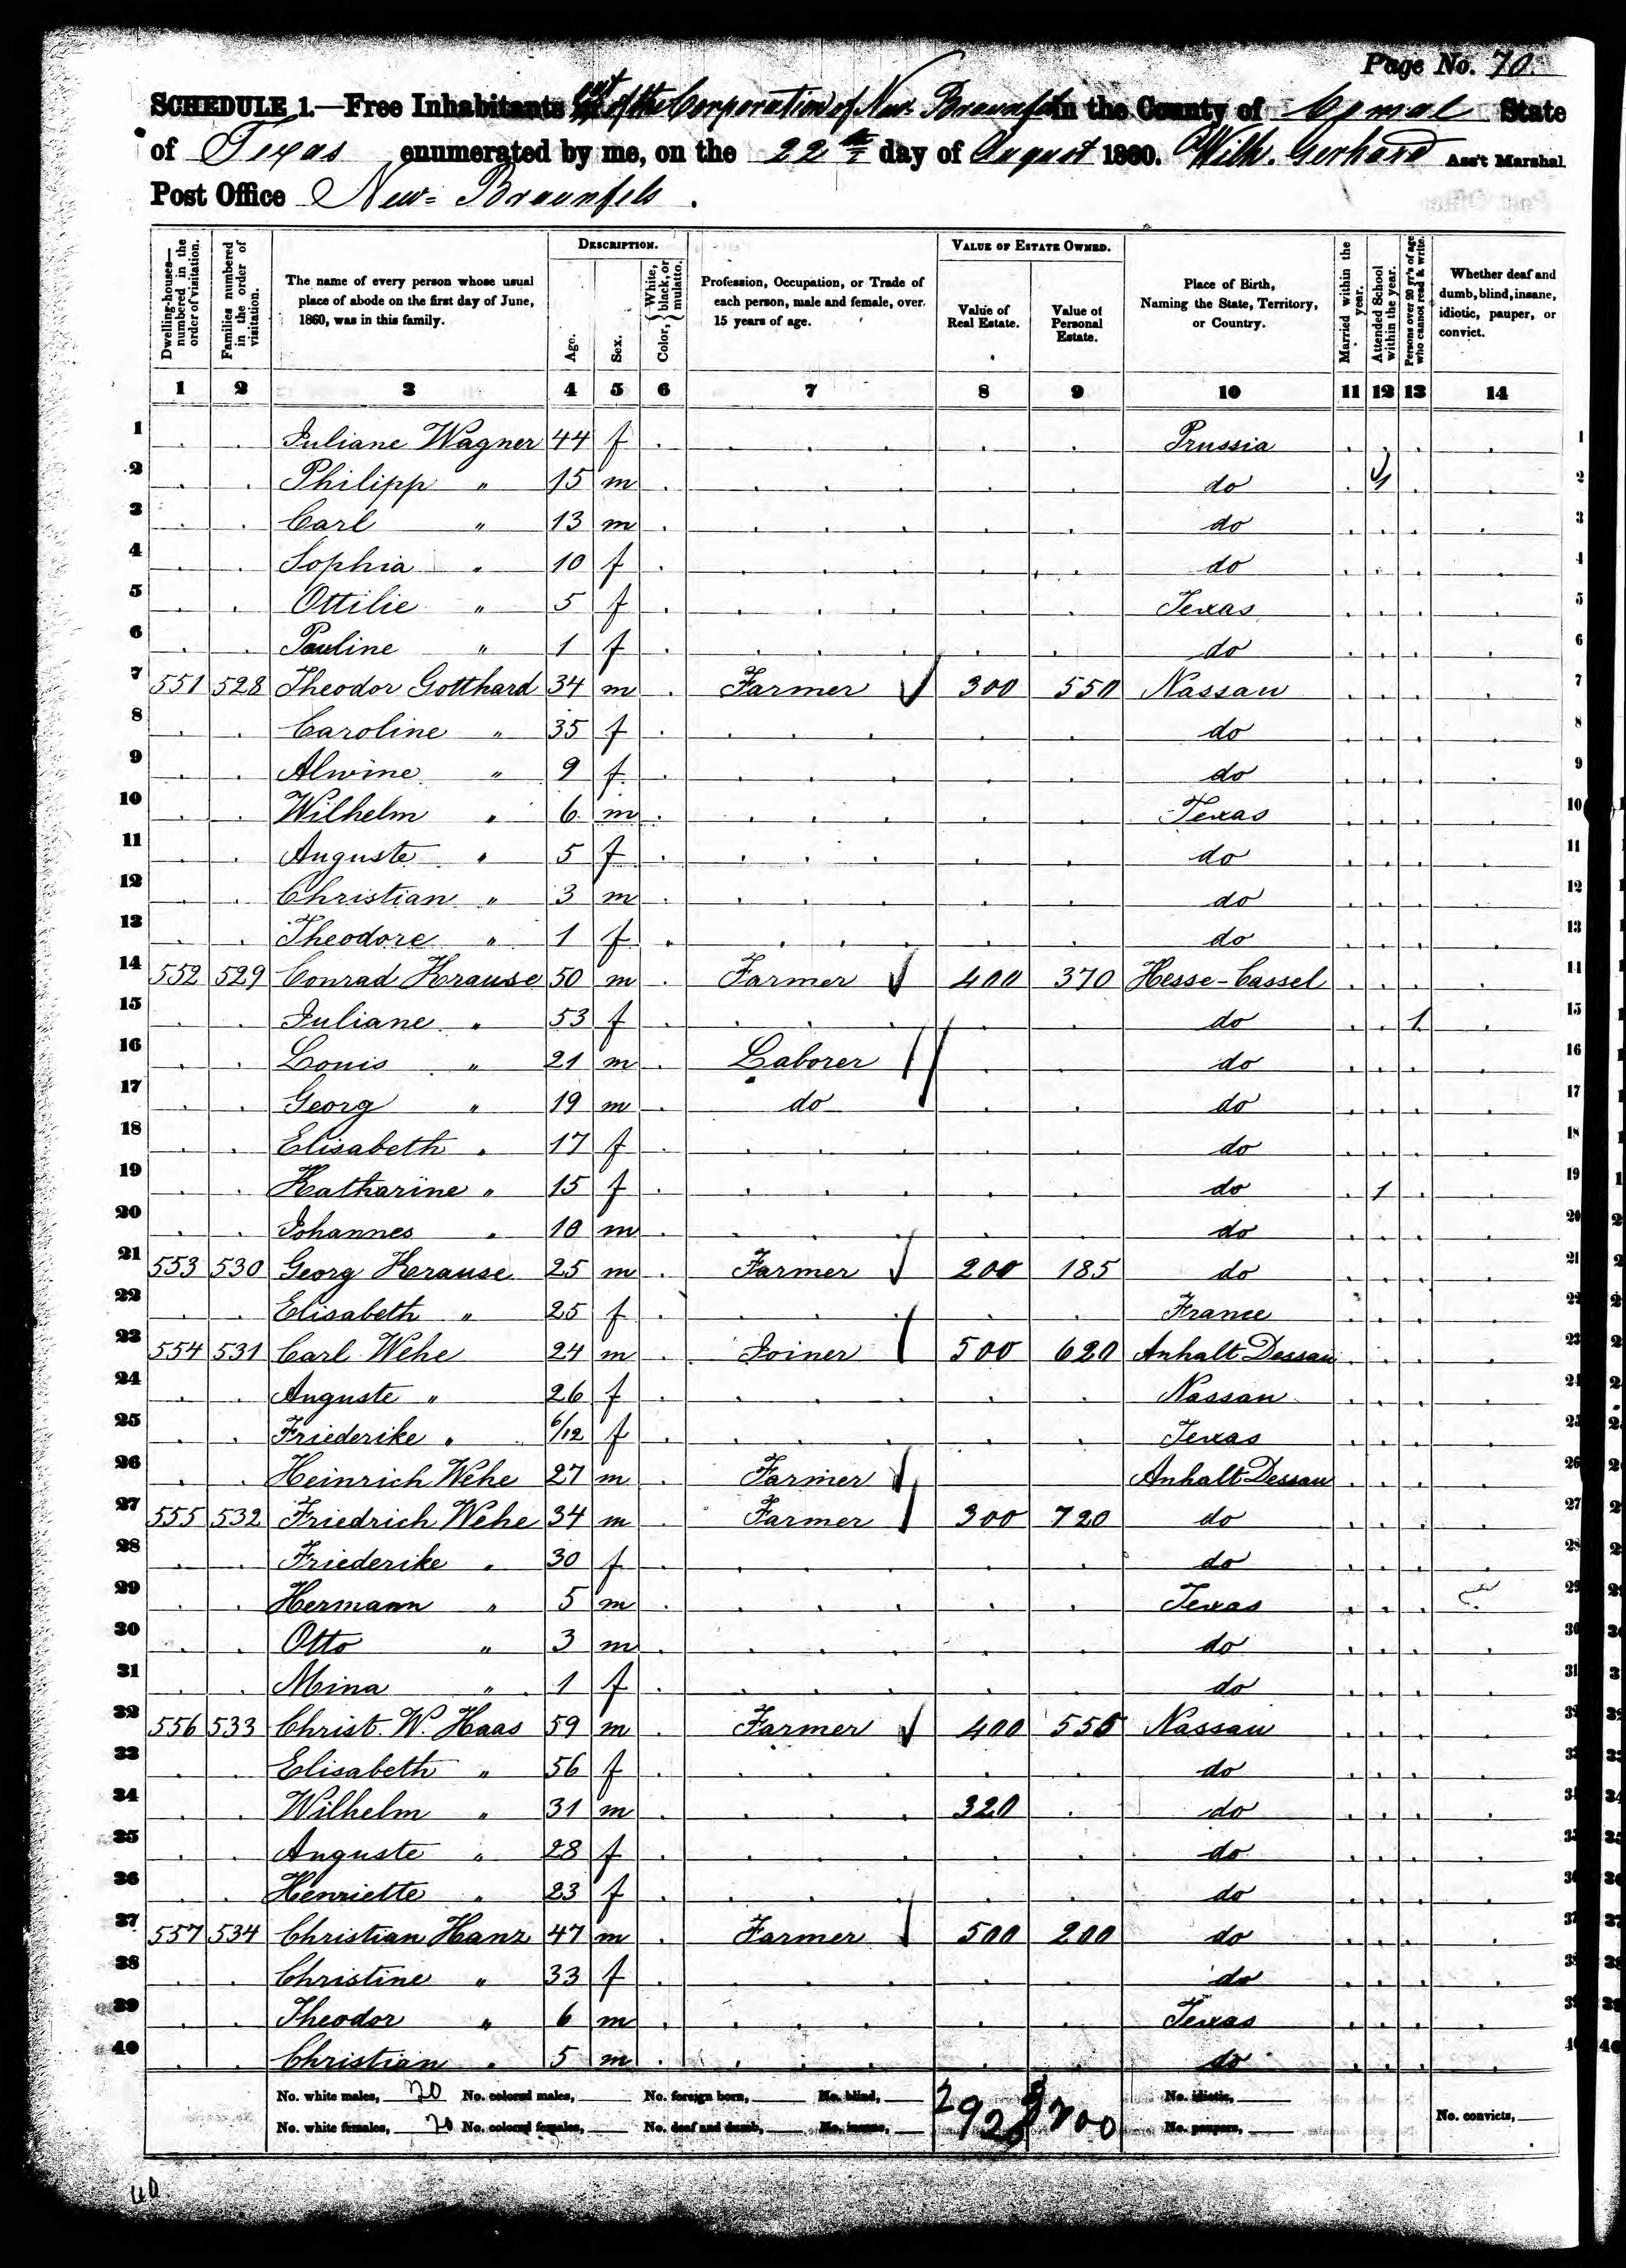 Page No. 70.
SCHEDULE 1.—Free Inhabitants out of the Corporation of New Braunfels in the County of Comal State
of Texas enumerated by me, on the 22th day of August 1860. Wilh. Gerhard Ass't Marshal.
Post Office New=Braunfels.
Dwelling-houses—numbered in the order of visitation.
Families numbered in the order of visitation.
The name of every person whose usual place of abode on the first day of June, 1860, was in this family.
DESCRIPTION.
Age.
Sex.
Color, White, black, or mulatto.
Profession, Occupation, or Trade of each person, male and female, over 15 years of age.
VALUE OF ESTATE OWNED.
Value of Real Estate.
Value of Personal Estate.
Place of Birth, Naming the State, Territory, or Country.
Married within the year.
Attended School within the year.
Persons over 20 yr's of age who cannot read & write.
Whether deaf and dumb, blind, insane, idiotic, pauper, or convict.
1 2 3 4 5 6 7 8 9 10 11 12 13 14
1 Juliane Wagner 44 f Prussia 1
2 Philipp " 15 m do 1 2
3 Carl " 13 m do 3
4 Sophia " 10 f do 4
5 Ottilie " 5 f Texas 5
6 Pauline " 1 f do 6
7 551 528 Theodor Gotthard 34 m Farmer 300 550 Nassau 7
8 Caroline " 35 f do 8
9 Alwine " 9 f do 9
10 Wilhelm " 6 m Texas 10
11 Auguste " 5 f do 11
12 Christian " 3 m do 12
13 Theodore " 1 f do 13
14 552 529 Conrad Krause 50 m Farmer 400 370 Hesse-Cassel 14
15 Juliane " 53 f do 1 15
16 Louis " 21 m Laborer do 16
17 Georg " 19 m do do 17
18 Elisabeth " 17 f do 18
19 Katharine " 15 f do 1 19
20 Johannes " 10 m do 20
21 553 530 Georg Krause 25 m Farmer 200 185 do 21
22 Elisabeth " 25 f France 22
23 554 531 Carl Wehe 24 m Joiner 500 620 Anhalt Dessau 23
24 Auguste " 26 f Nassau 24
25 Friederike " 6/12 f Texas 25
26 Heinrich Wehe 27 m Farmer Anhalt Dessau 26
27 555 532 Friedrich Wehe 34 m Farmer 300 720 do 27
28 Friederike " 30 f do 28
29 Hermann " 5 m Texas 29
30 Otto " 3 m do 30
31 Mina " 1 f do 31
32 556 533 Christ. W. Haas 59 m Farmer 400 555 Nassau 32
33 Elisabeth " 56 f do 33
34 Wilhelm " 31 m 320 do 34
35 Auguste " 28 f do 35
36 Henriette " 23 f do 36
37 557 534 Christian Hanz 47 m Farmer 500 200 do 37
38 Christine " 33 f do 38
39 Theodor " 6 m Texas 39
40 Christian " 5 m do 40
No. white males, 20 No. colored males, No. foreign born, No. blind, No. idiotic,
No. white females, 20 No. colored females, No. deaf and dumb, No. insane, No. paupers, No. convicts,